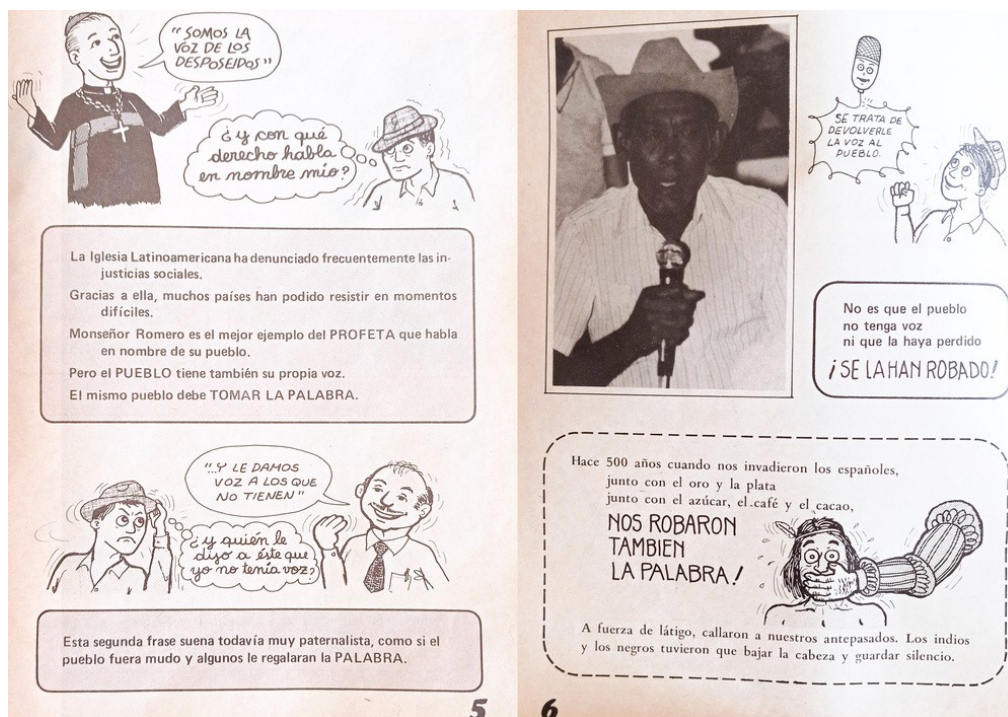 "SOMOS LA
VOZ DE LOS
DESPOSEIDOS"
¿y con qué
derecho habla
en nombre mío?
La Iglesia Latinoamericana ha denunciado frecuentemente las in-
justicias sociales.
Gracias a ella, muchos países han podido resistir en momentos
difíciles.
Monseñor Romero es el mejor ejemplo del PROFETA que habla
en nombre de su pueblo.
Pero el PUEBLO tiene también su propia voz.
El mismo pueblo debe TOMAR LA PALABRA.
"...Y LE DAMOS
VOZ A LOS QUE
NO TIENEN"
¿y quién le
dijo a éste que
yo no tenía voz?
Esta segunda frase suena todavía muy paternalista, como si el
pueblo fuera mudo y algunos le regalaran la PALABRA.
5
SE TRATA DE
DEVOLVERLE
LA VOZ AL
PUEBLO.
No es que el pueblo
no tenga voz
ni que la haya perdido
¡SE LA HAN ROBADO!
Hace 500 años cuando nos invadieron los españoles,
junto con el oro y la plata
junto con el azúcar, el café y el cacao,
NOS ROBARON
TAMBIEN
LA PALABRA!
A fuerza de látigo, callaron a nuestros antepasados. Los indios
y los negros tuvieron que bajar la cabeza y guardar silencio.
6